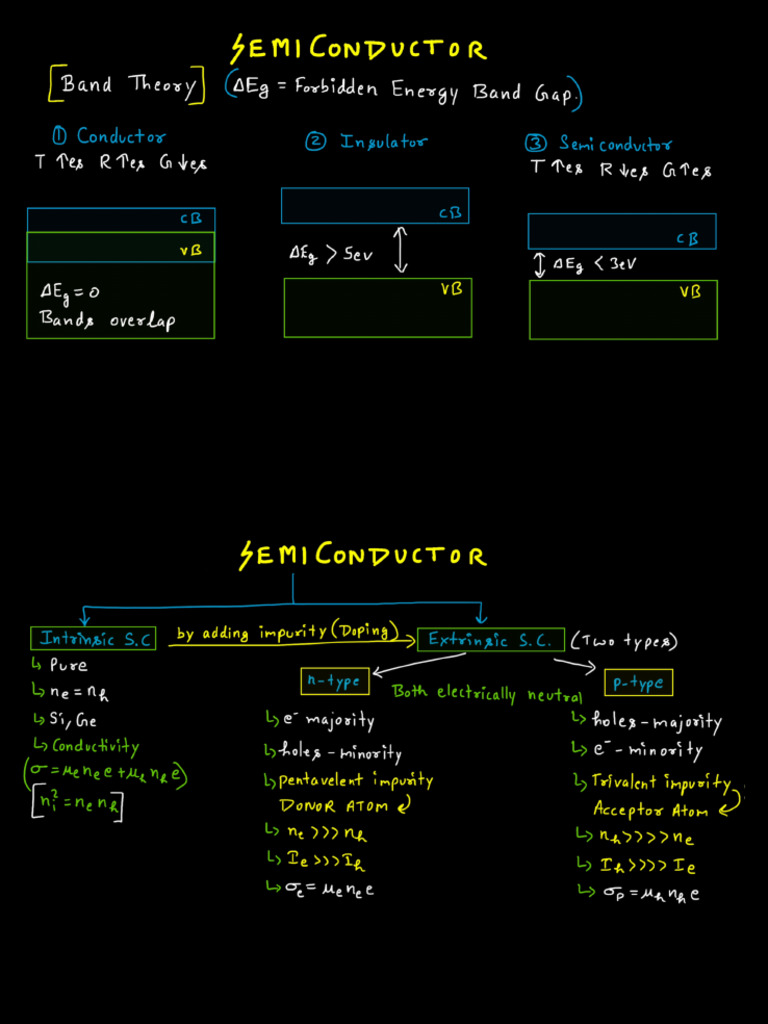 SEMICONDUCTOR
[Band Theory] (ΔEg = Forbidden Energy Band Gap.)
① Conductor
T ↑es R↑es G↓es
CB
VB
ΔEg = 0
Bands overlap
② Insulator
CB
ΔEg > 5ev
VB
③ Semiconductor
T ↑es R ↓es G↑es
CB
ΔEg < 3eV
VB
SEMICONDUCTOR
Intrinsic S.C
by adding impurity (Doping)
Extrinsic S.C. (Two types)
↳ Pure
↳ ne = nh
↳ Si, Ge
↳ Conductivity
(σ = μe ne e + μh nh e)
[ni² = ne nh]
Both electrically neutral
n-type
↳ e⁻ majority
↳ holes - minority
↳ pentavelent impurity
DONOR ATOM
↳ ne >>> nh
↳ Ie >>> Ih
↳ σe = μe ne e
p-type
↳ holes - majority
↳ e⁻ - minority
↳ Trivalent impurity
Acceptor Atom
↳ nh >>>> ne
↳ Ih >>>> Ie
↳ σp = μh nh e